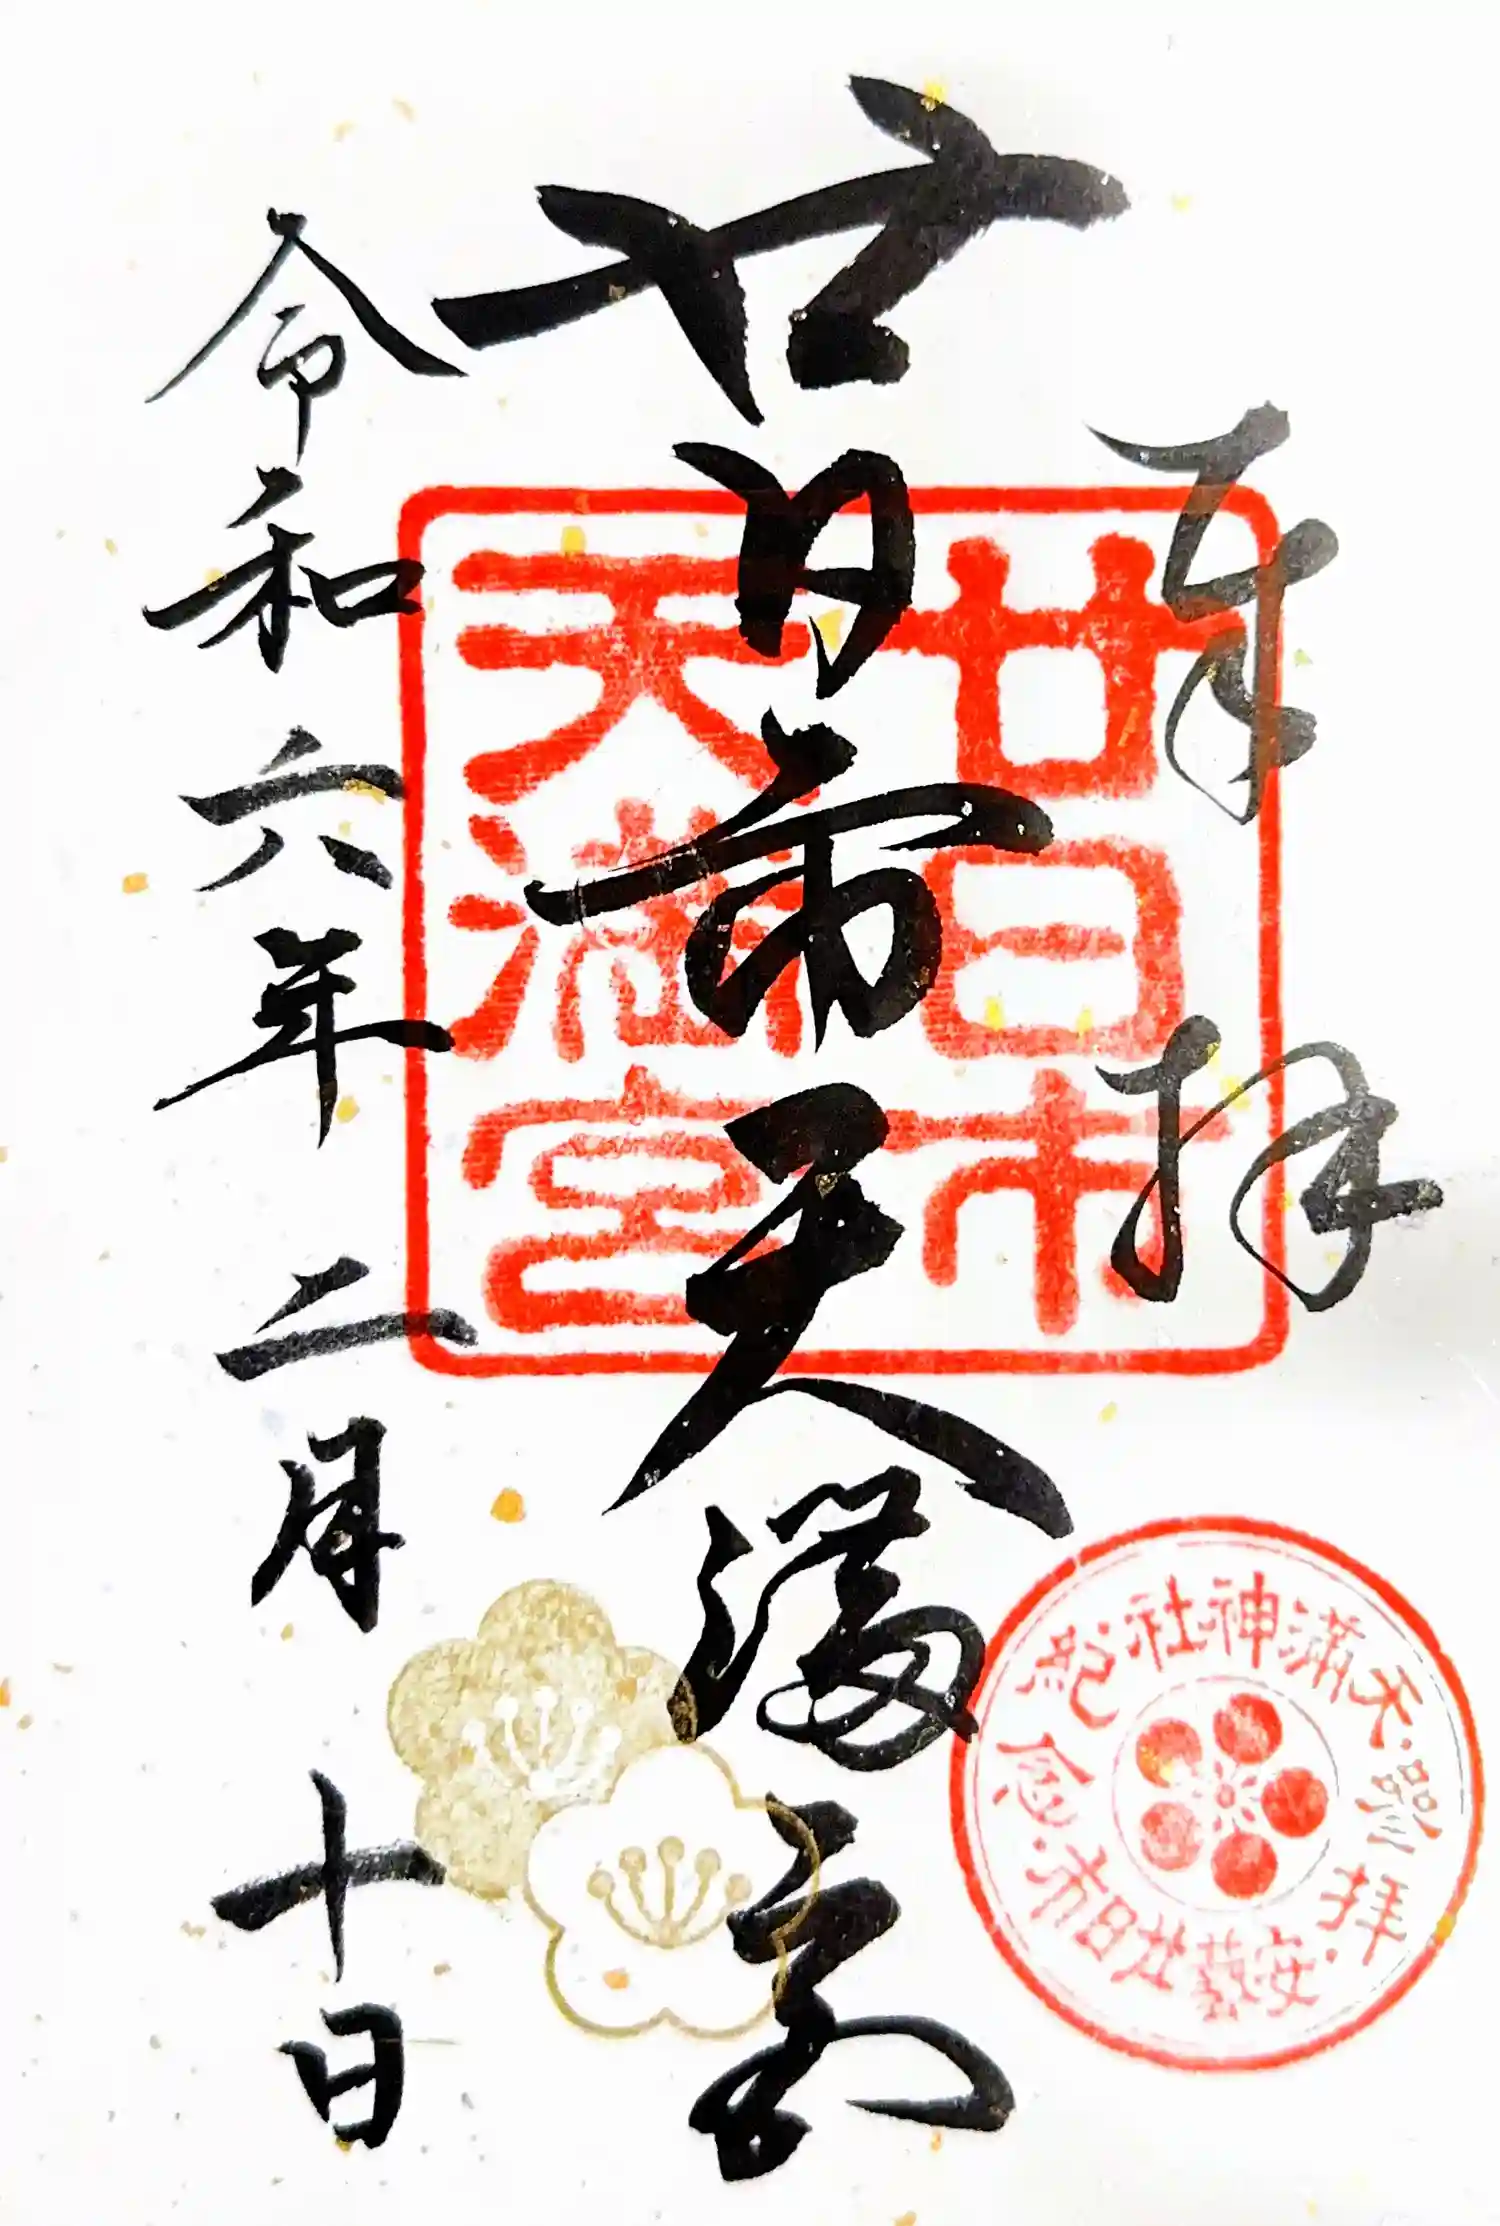 奉拝
廿日市天満宮
令和六年二月十日
廿日市
天満宮
天満神社
参拝
紀念
安藝廿日市